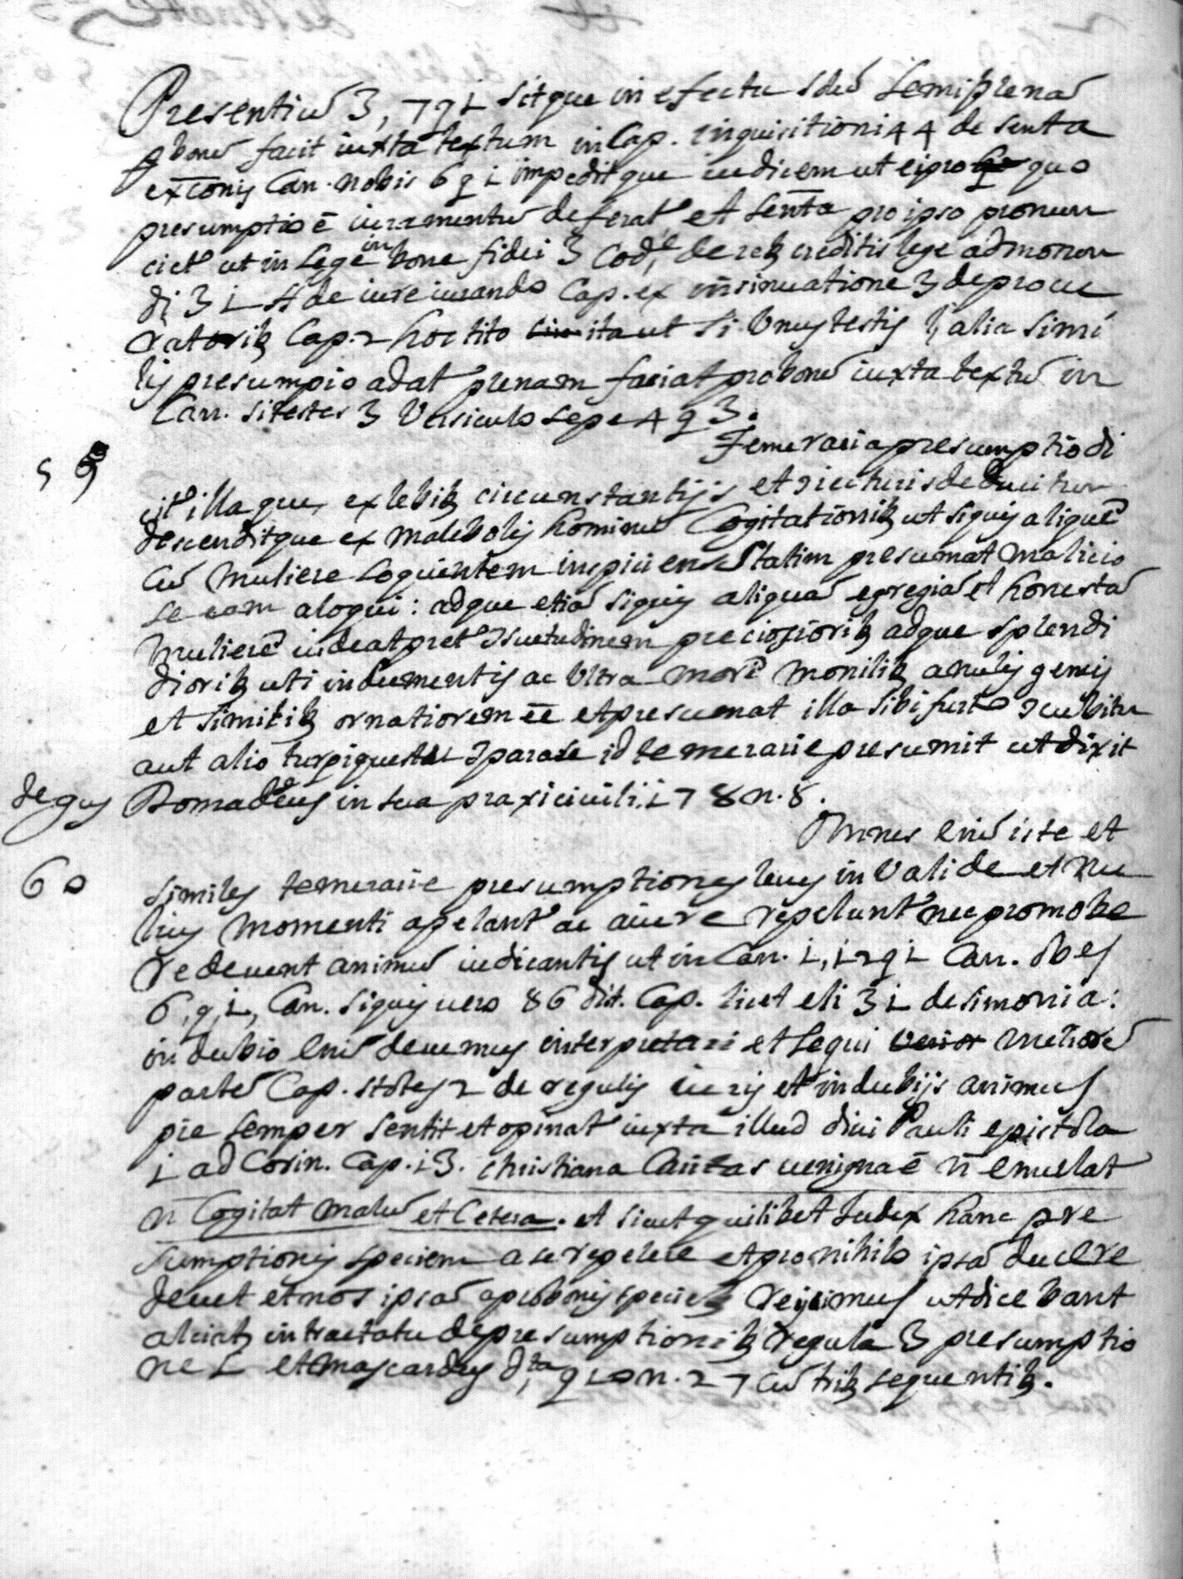 Presentiũ 3, 7 q 1 sitque in efectu sdũ semiplenã
pbonẽ facit iuxta textum in Cap. inquisitioni 44 de senta
excõnis Can. nobis 6 q 1 impedit que iudicem ut ei pro quo
presumptio ẽ iuramentũ deferat et senta pro ipso pronun
ciet ut in lege in bone fidei 3 Cod, de reb creditis lege admonen
di 31 ff de iure iurando Cap. ex insinuatione 3 de procu
ratorib Cap. 2 hoc tito ita ut si unus testis l alia simi
lis presumpio adat plenam faciat probonẽ iuxta textũ in
Can. si testes 3 Versiculo sepe 4 q 3.
Temeraria presumptio di
59
cit illa que ex lebib circunstantijs et iecturis deducitur
descenditque ex malebolis hominũ Cogitationib ut si quis aliquẽ
cũ muliere loquentem inspiciens statim presumat malicio
se eam aloqui: adque etiã si quis aliquã egregiã et honestã
mulierẽ uideat pret suetudinem preciosiorib adque splendi
diorib uti indumentis ac ultra morẽ monilib anulis gemis
et similib ornatiorem ẽe et presumat illa sibi furto cubitu
aut alio turpi questu parase id temerarie presumit ut dixit
de quis Romadeus in sua praxi ciuili. 178 n. 8.
Omnes enĩ iste et
60
similes temerarie presumptiones leues inValide et nu
lius momenti apelant ac a iure repelunt nec promobe
re deuent animũ iudicantis ut in Can. 1, 12 q 1 Can. obes
6, q, 1, Can. si quis uero 86 dist. Cap. licet eli 31 de simonia:
in dubio enĩ deuemus interpretari et sequi meliorẽ
partẽ Cap. stotes 2 de regulis iuris et in dubijs animus
pie semper sentit et opinat iuxta illud diui Pauli epistola
1 ad Corin. Cap. 13. christiana Caritas uenigna ẽ ñ emulat
ñ Cogitat malũ et Cetera. et sicut quilibet Iudex hanc pre
sumptionis speciem a se repelere et pro nihilo ipsã ducere
deuet et nos ipsã a probonis specie reijcimus ut dicebant
alciat in tractatu de presumptionib regula 3 presumptio
ne 1 et mascardus dta, q 10 n. 27 cũ trib sequentib.